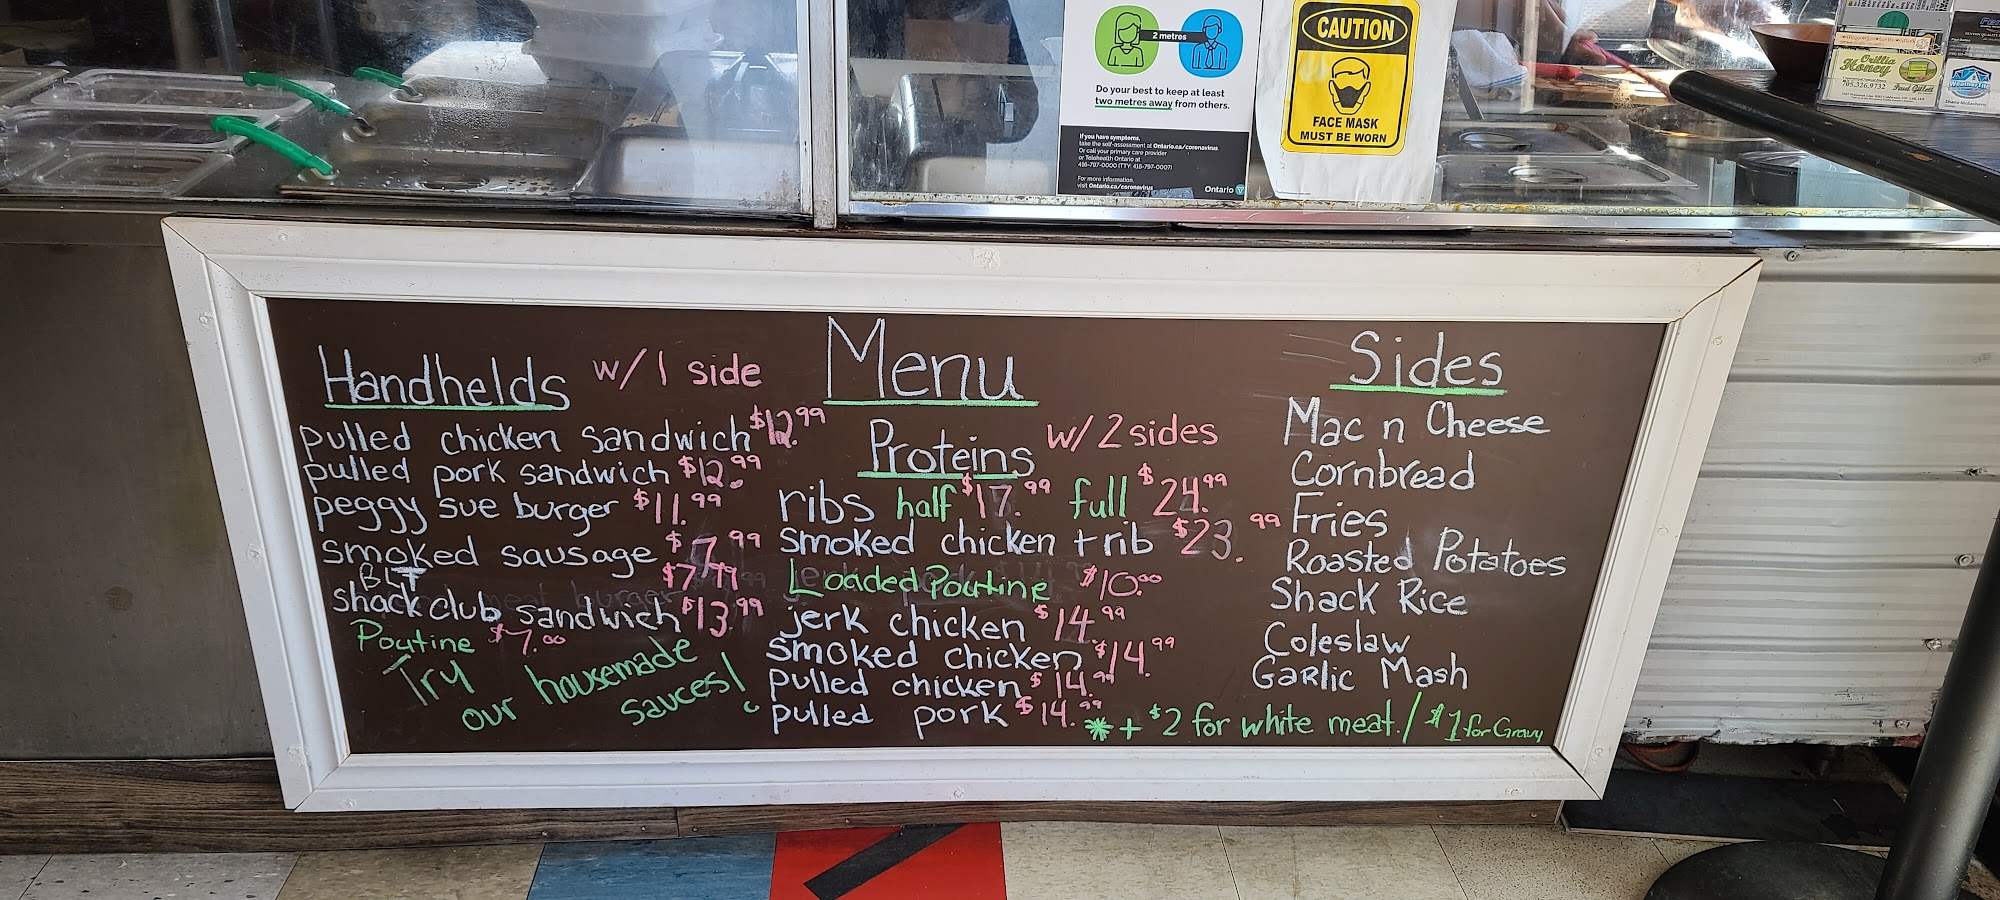 2 metres
Do your best to keep at least
two metres away from others.
If you have symptoms,
take the self-assessment at Ontario.ca/coronavirus
Or call your primary care provider
or Telehealth Ontario at
416-797-0000 (TTY: 416-797-0007)
For more information,
visit Ontario.ca/coronavirus
Ontario
CAUTION
FACE MASK
MUST BE WORN
Orillia
Honey
705.326.9732
Menu
Handhelds w/ 1 side
pulled chicken sandwich $12.99
pulled pork sandwich $12.99
peggy sue burger $11.99
smoked sausage $7.99
BLT $7.99
shack club sandwich $13.99
Poutine $7.00
Try
our housemade
sauces!
Proteins w/ 2 sides
ribs half $17.99 full $24.99
smoked chicken + rib $23.99
Loaded Poutine $10.00
jerk chicken $14.99
smoked chicken $14.99
pulled chicken $14.99
pulled pork $14.99
* + $2 for white meat. / $1 for Gravy
Sides
Mac n Cheese
Cornbread
Fries
Roasted Potatoes
Shack Rice
Coleslaw
Garlic Mash